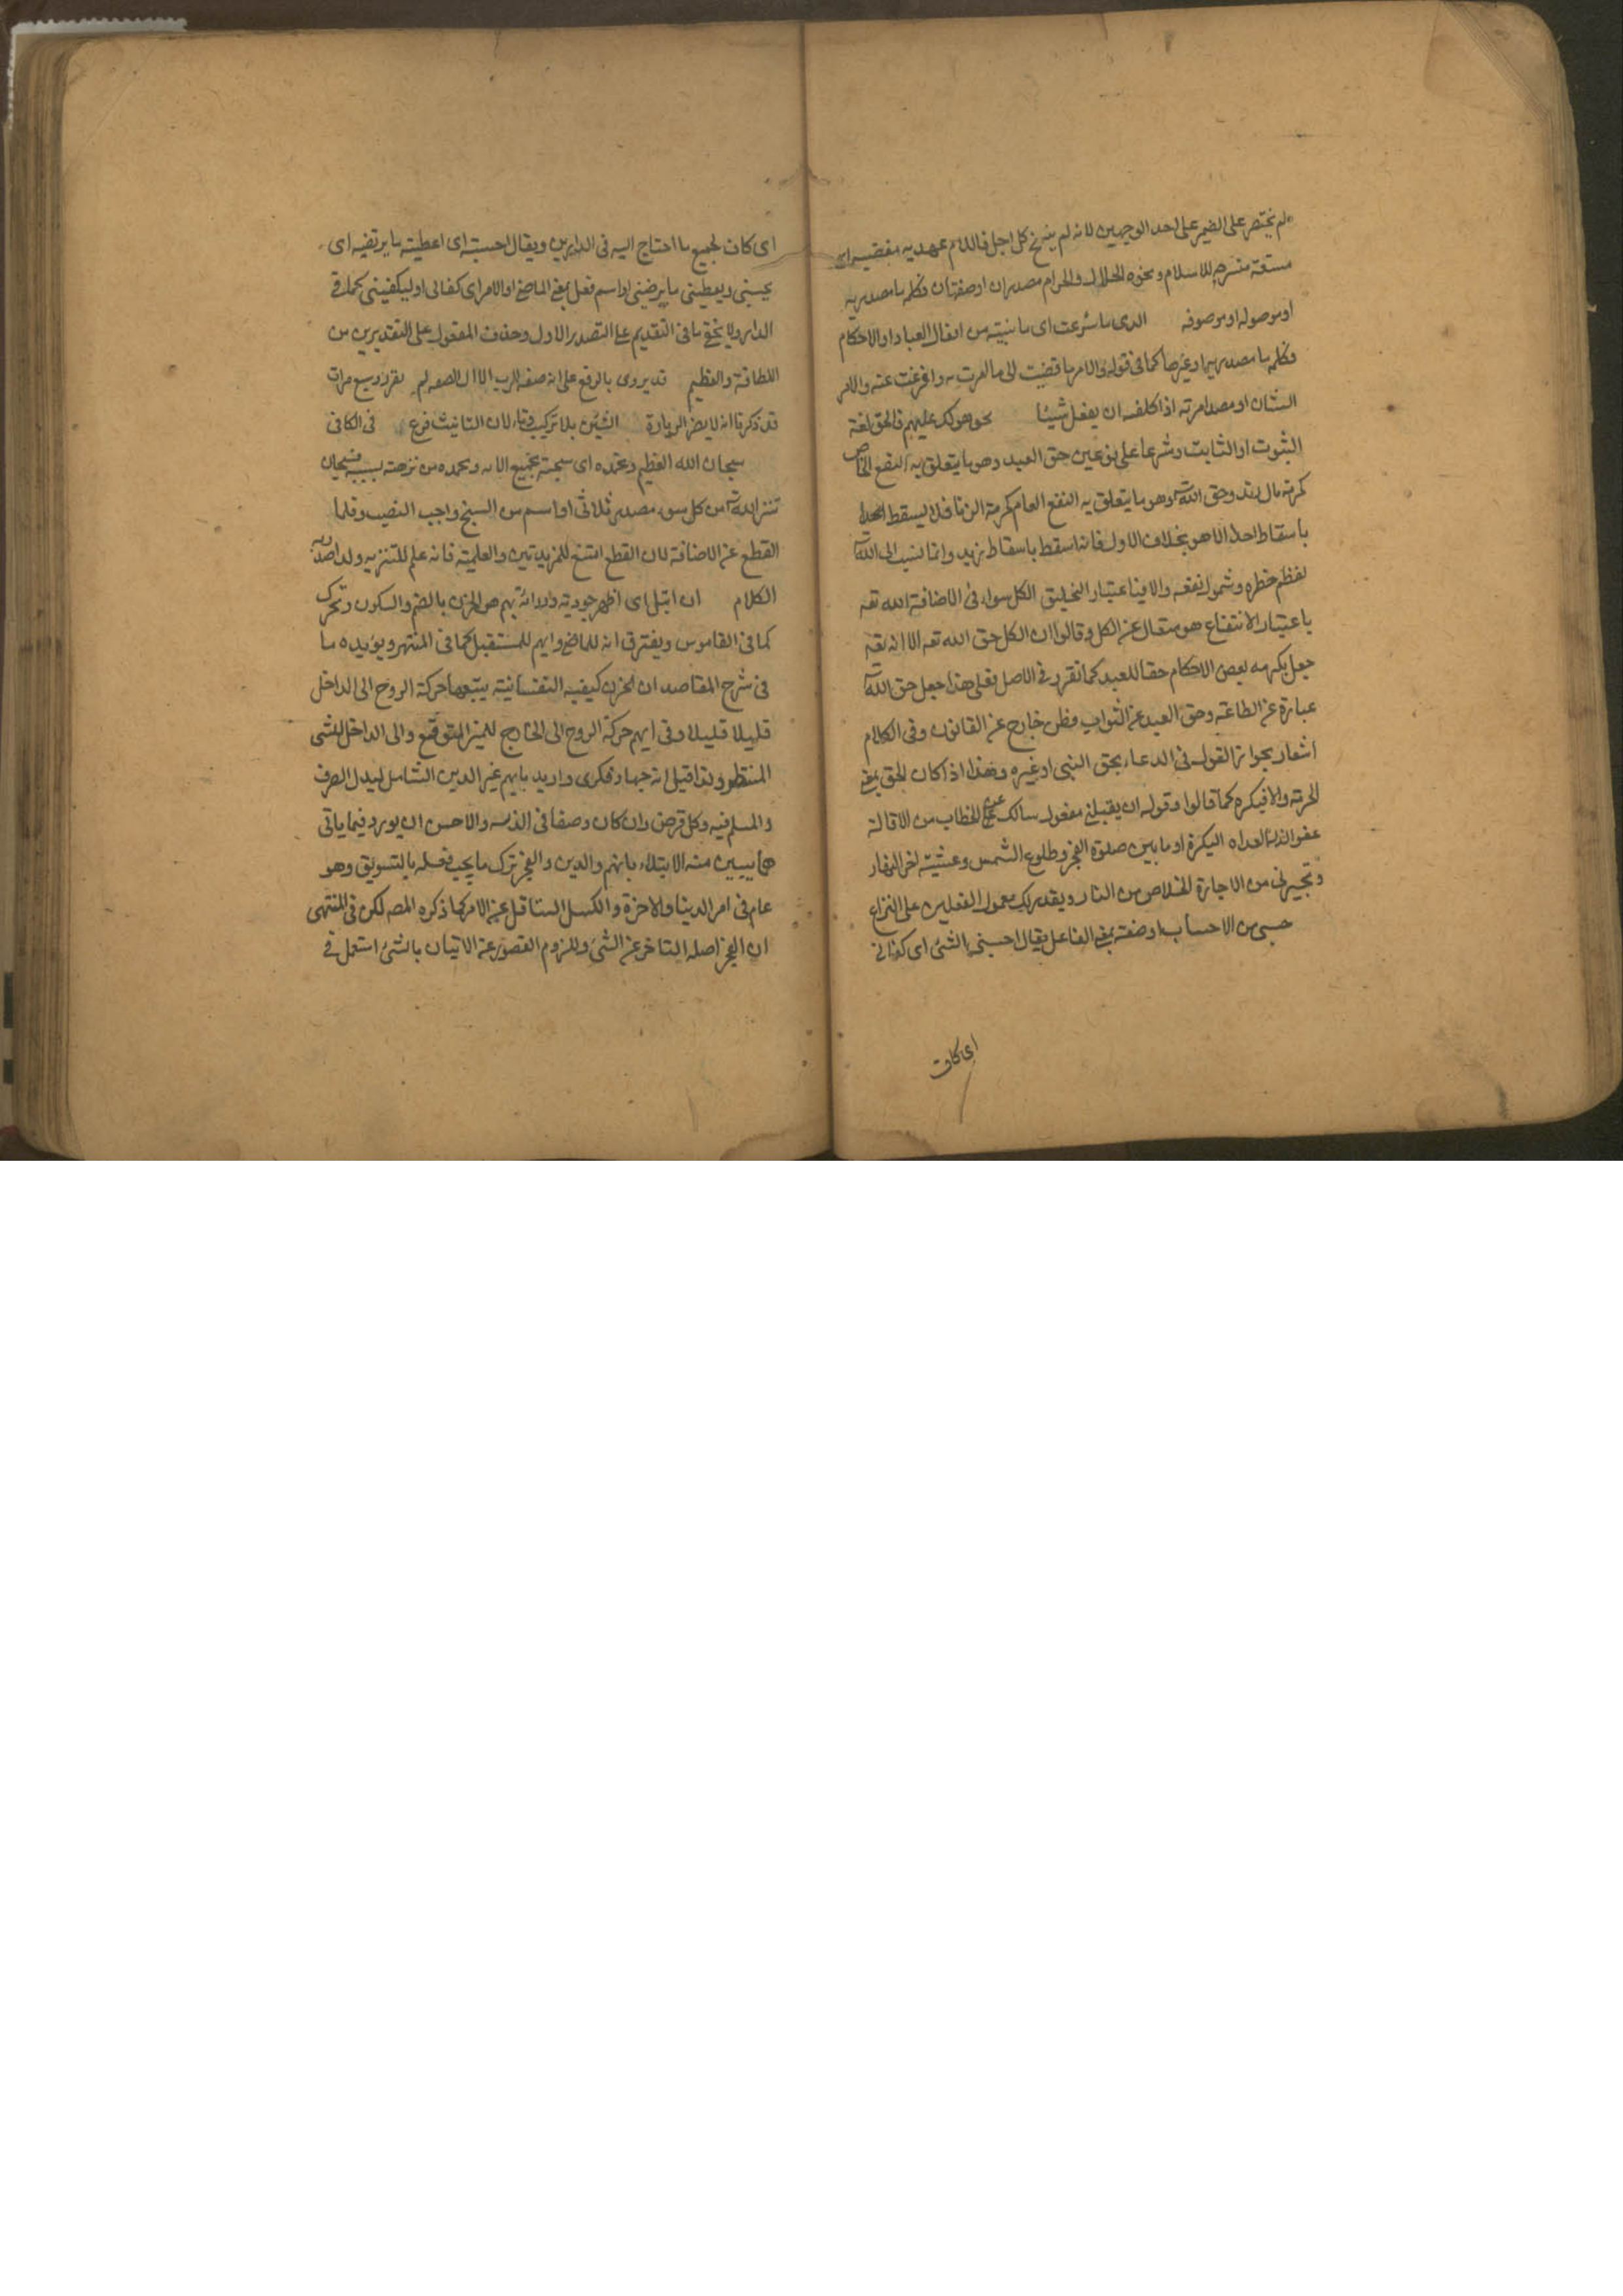 لم يختصر على الضمير على احد الوجهين لانه لم ينسخ كل اجل فاللام عهديه مقتضيه اى
متسعة منشرحه للاسلام ونحوه الحلال والحرام مصدران او صفتان وكلمه ما مصدريه
او موصوله او موصوفه الدى ما شرعت اى ما بنيته من افعال العباد او الاحكام
وكلمه ما مصدريه او غيرها كما فى قوله والامر ما قضيت اى ما امرت به وافرغت عنه والامر
الشان او مصدر امرته اذا كلفه ان يفعل شيئا نحو هو لك عليهم فالحق لغة
الثبوت او الثابت وشرعا على نوعين حق العبد وهو ما يتعلق به النفع الخاص
كحرمة مال زيد وحق الله وهو ما يتعلق به النفع العام كحرمة الزنا فلا يسقط احدا
باسقاط احد الا هو بخلاف الاول فانه اسقط باسقاط زيد وانما ينسب الى الله
لعظم خطره وشمول نفعه والا فباعتبار التخليق الكل سواء فى الاضافة الى الله تعه
باعتبار الانتفاع هو متعال عن الكل وقالوا ان الكل حق الله تعه الا انه تعه
جعل بكرمه بعض الاحكام حقا للعبد كما تقرر فى الاصل فعلى هذا جعل حق الله
عبارة عن الطاعة وحق العبد عن الثواب فظن خارج عن القانون وفى الكلام
اشعار بجواز القول فى الدعاء بحق النبى او غيره وهذا اذا كان الحق بمعنى
الحرمة والا فيكره كما قالوا وقوله ان يقبلنى مفعول سالك على الخطاب من الاقالة
عفو الذنب الغداه البكرة او ما بين صلوة الفجر وطلوع الشمس وعشية اخر النهار
وتجيرنى من الاجارة الخلاص من النار وبقدرتك معمول الفعلين على النزاع
حسبى من الاحساب او صفة بمعنى الفاعل يقال احسبنى الشئ اى كفانى
اى كاف
اى كاف لجميع ما احتاج اليه فى الدارين ويقال احسبته اى اعطيته ما يرتضيه اى
يحسبنى ويعطينى ما يرضينى او اسم فعل بمعنى الماضى او الامر اى كفانى او ليكفينى كما فى
الدار ولا يخفى ما فى التقديم على التصدر الاول وحذف المفعول على التقديرين من
اللطافة والعظيم قد يروى بالرفع على انه صفه الرب الا ان الصفه لم يقرر وسبع مرات
قد ذكرنا انه لا يضر الزيادة الشين بلا تركيب وتاء لان التانيث فرع فى الكافى
سبحان الله العظيم وبحمده اى سبحته بجميع الائه وبحمده من نزهته بسببه فسبحان
تنزه الله من كل سوء مصدر ثلاثى او اسم من السبح واجب النصب وقلما
القطع عن الاضافة لان القطع امتنع للمزيدتين والعلمية فانه علم للتنزيه ولد اصدر به
الكلام ان ابتلى اى اظهر جودته ورداءته بهم هو الحزن بالضم والسكون وتحرك
كما فى القاموس ويفترق انه للماضى وايهم للمستقبل كما فى المنتهر ويؤيده ما
فى شرح المقاصد ان الحزن كيفيه النفسانية يتبعها حركة الروح الى الداخل
قليلا قليلا وفى ايهم حركة الروح الى الخارج للخير المتوقع والى الداخل للشى
المنتظر ولذا قيل انه جهاد فكرى واريد بايهم غير الدين الشامل لبدل الصرف
والمسلم فيه وكل قرض وان كان وصفا فى الذمه والاحسن ان يورد فيما ياتى
هما يبين منه الابتلاء بانهم والدين والعجز ترك ما يجب فعله بالتسويق وهو
عام فى امر الدنيا والاخرة والكسل التثاقل عن الامر كما ذكره المصه لكن فى المنتهى
ان العجز اصله التاخر عن الشئ وللزوم القصور عن الاتيان بالشئ استعمل فى